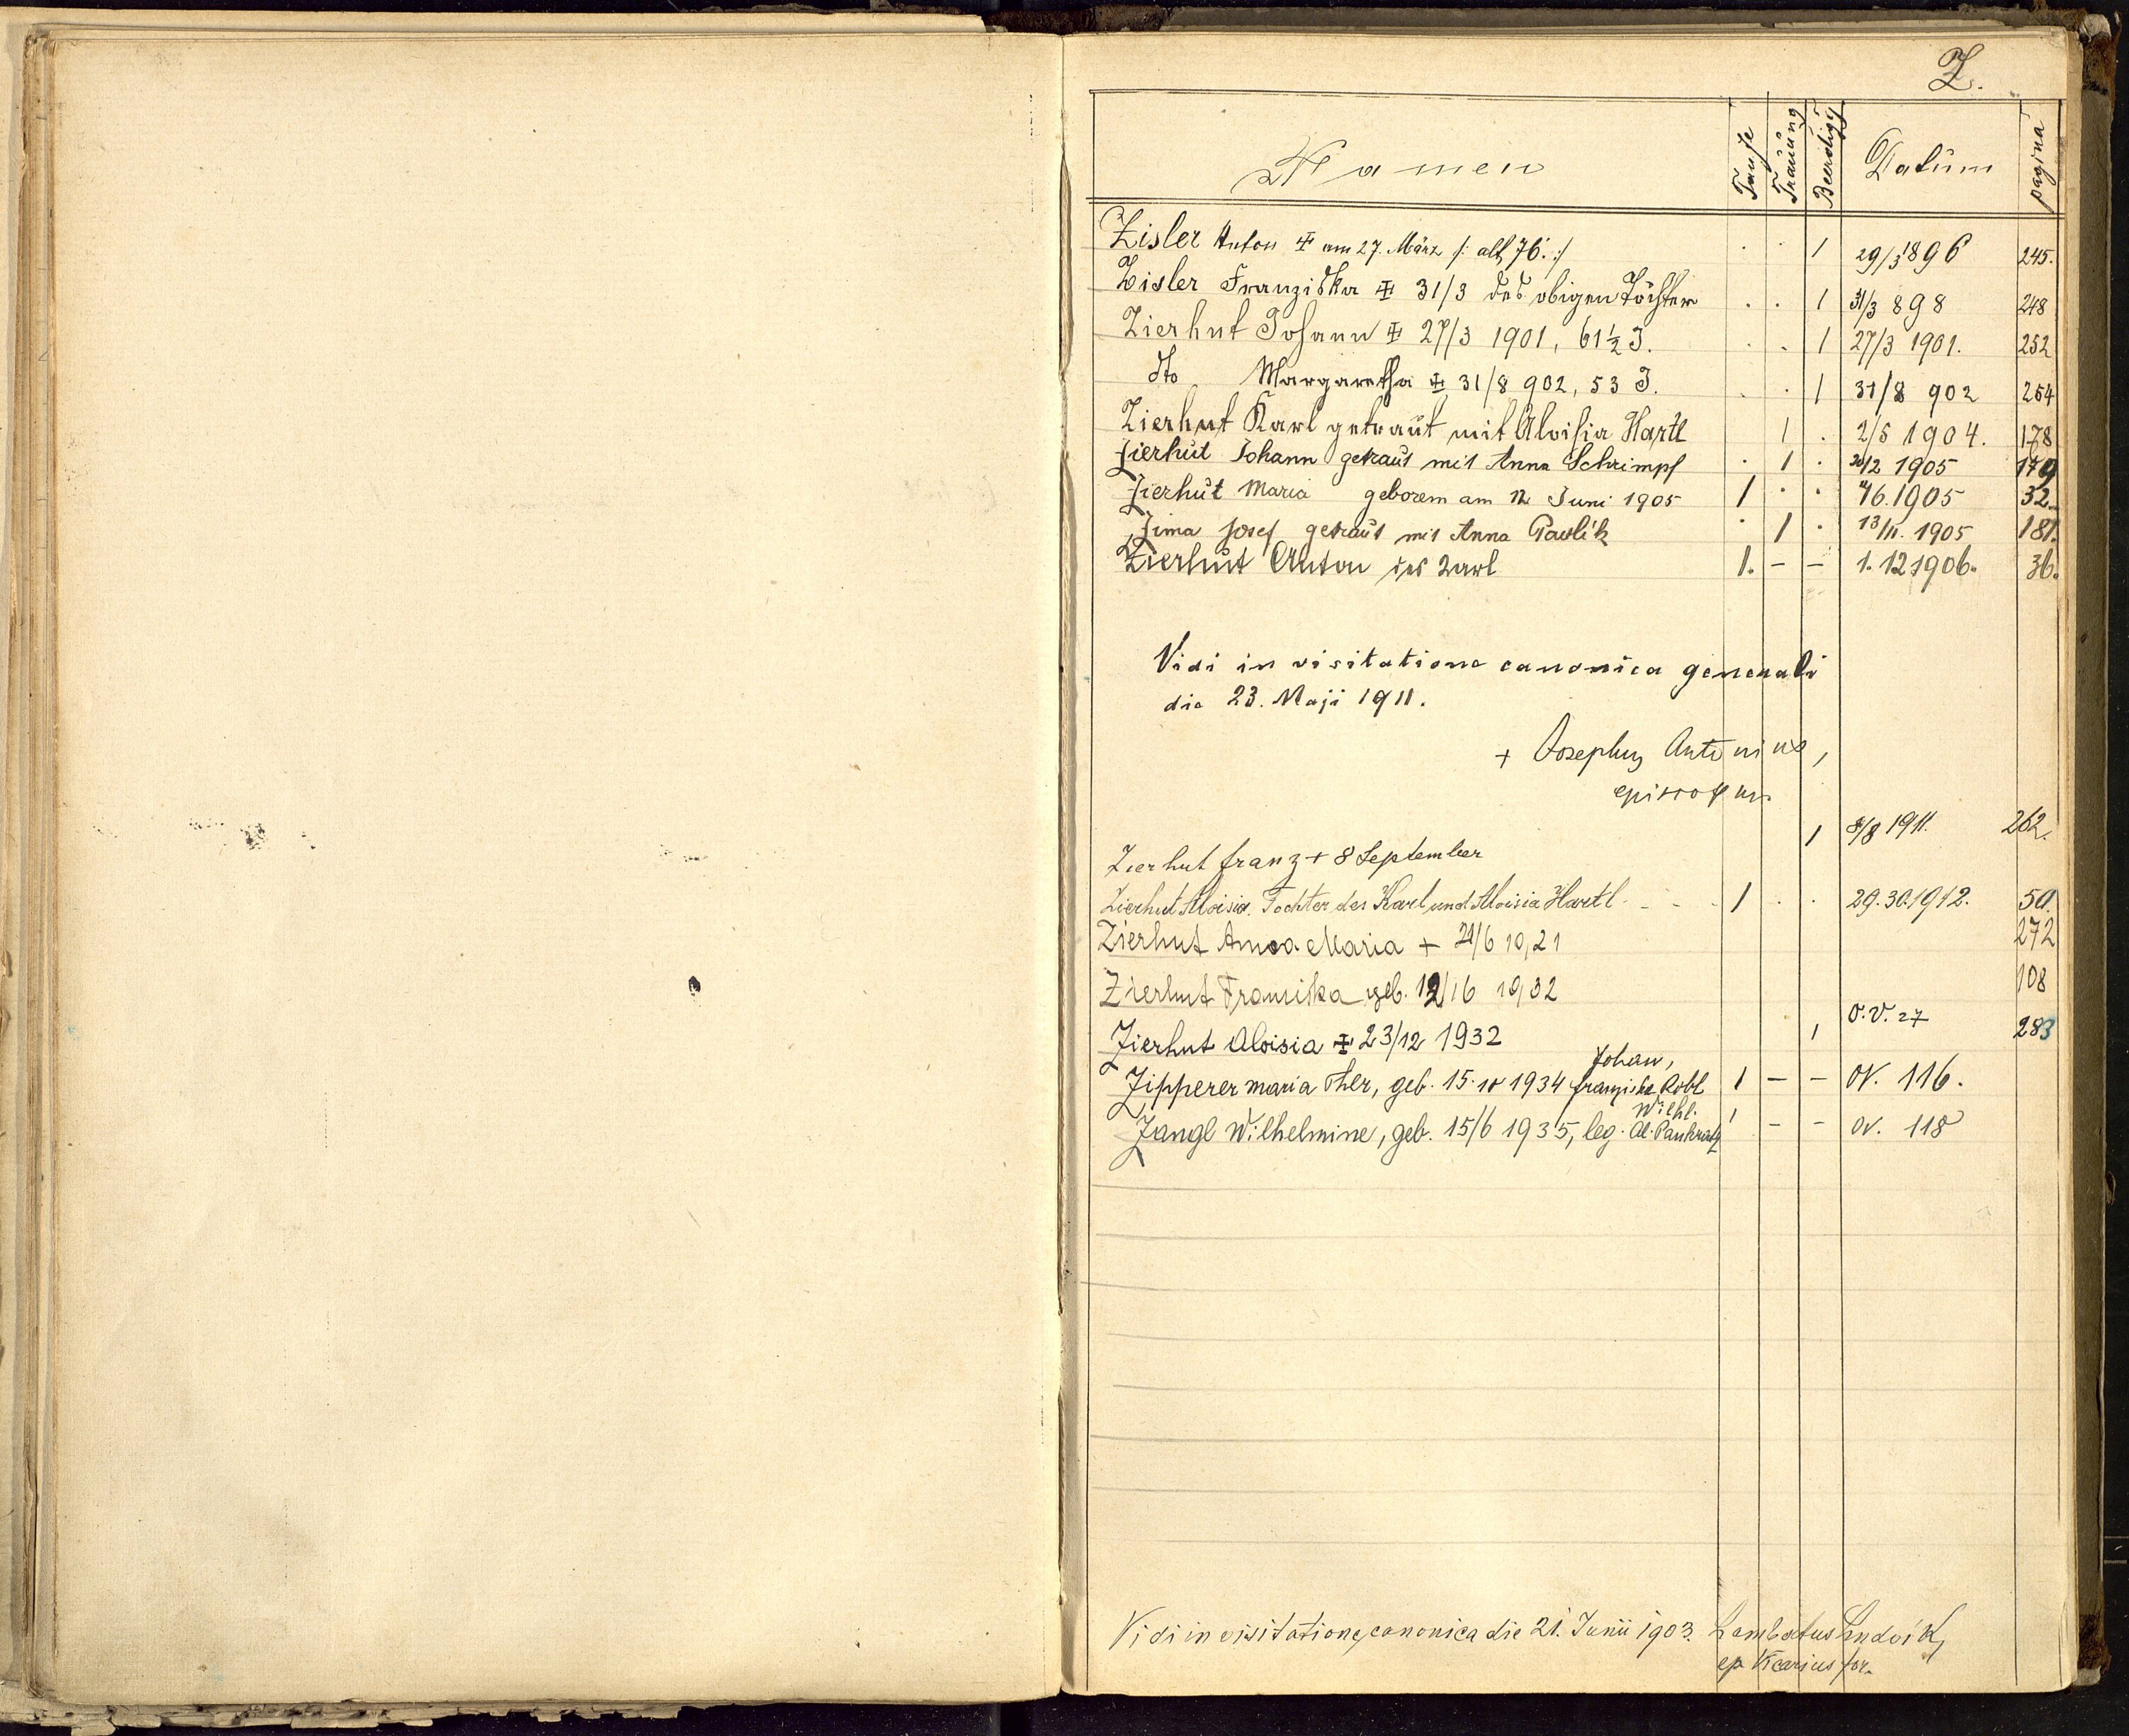 Z.
Namen Taufe Trauung Beerdigg Datum pagina
Zisler Anton ☩ am 27. März /: alt 76 :/ . . 1 29/3 1896 245.
Zisler Franziska ☩ 31/3 des obigen Tochter . . 1 31/3 898 248
Zierhut Johann ☩ 27/3 1901, 61½ J. . . 1 27/3 1901. 252
dto Margaretha ☩ 31/8 902, 53 J. . . 1 31/8 902 254
Zierhut Karl getraut mit Aloisia Hartl 1 . 2/5 1904. 178
Zierhut Johann getraut mit Anna Schrimpf . 1 . 1905 179
Zierhut Maria geborem am 12 Juni 1905 1 . . 6. 1905 32.
Zima Josef getraut mit Anna Pavlik . 1 . 13/11. 1905 181.
Zierhut Anton des Karl 1. – – 1. 12 1906. 36.
Vidi in visitatione canonica generali
die 23. Maji 1911.
+ Josephus Antonius,
episcopus.
1 8/8 1911. 262.
Zierhut Franz + 8 September
Zierhut Aloisia, Tochter des Karl und Aloisia Hartl - - - 1 . . 29.30.1912. 50.
Zierhut Anna Maria + 21/6 19,21 272
Zierhut Franziska geb. 12/16 19,32 108
Zierhut Aloisia ☩ 23/12 1932 1 O.V. 27 283
Johan,
Zipperer Maria Ther, geb. 15. 10 1934 Franziska Robl 1 – – OV. 116.
Wilhl.
Zangl Wilhelmine, geb. 15/6 1935, leg. Al. Pankratz 1 – – OV. 118
Vidi in visitatione canonica die 21. Junii 1903. Lambertus
ep. Vicarius for.